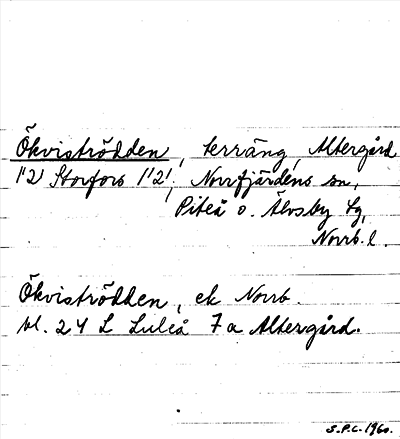 Ökviströdden, terräng, Altergård
1'2' Storfors 1'2', Norrfjärdens sn,
Piteå o. Älvsby tg,
Norrb. l.
Ökviströdden, ek Norrb.
bl. 24 L Luleå 7a Altergård.
S.P.C. 1960.